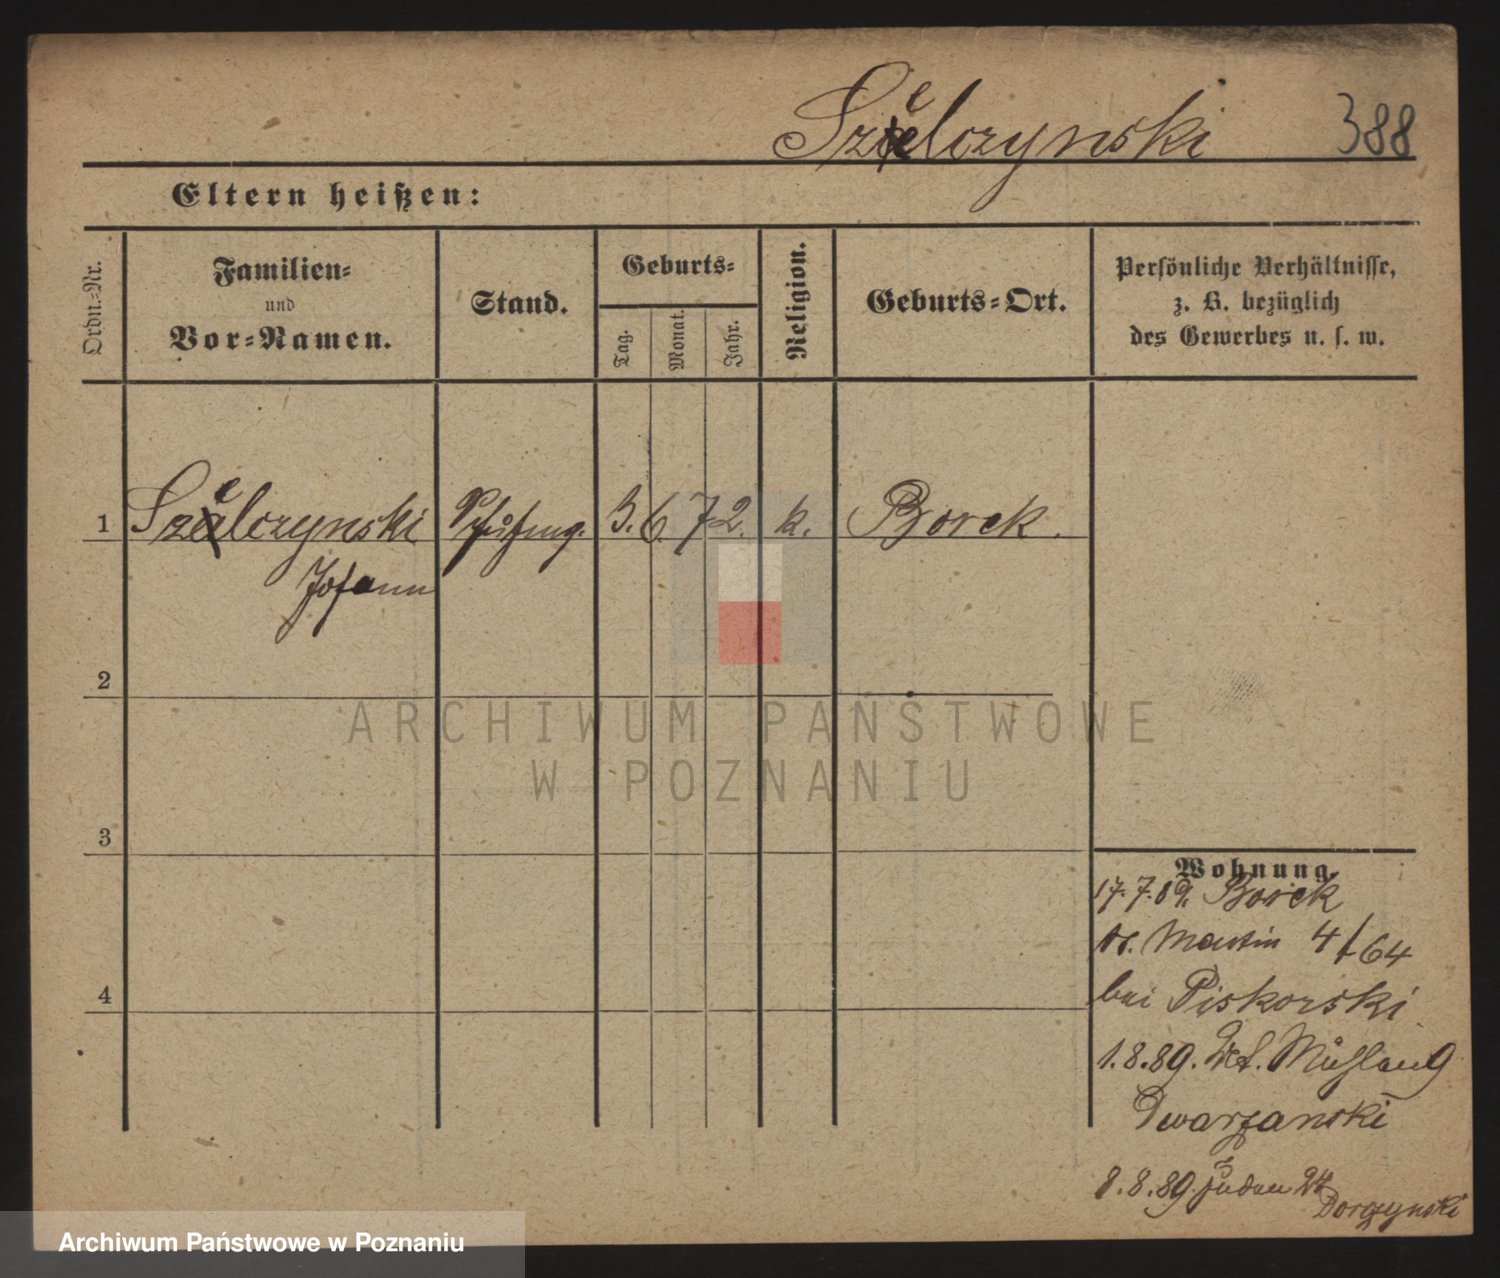 Szelczynski 388
Eltern heißen:
Ordn.-Nr.
Familien-
und
Vor-Namen.
Stand.
Geburts-
Tag.
Monat.
Jahr.
Religion.
Geburts-Ort.
Persönliche Verhältnisse,
z. B. bezüglich
des Gewerbes u. s. w.
1 Szelczynski 3. 6. 72. k. Borek.
Johann
2
3
4
Wohnung
17.7.89. Borek
St. Martin 4/64
bei Piskorski
1.8.89. 9
8.8.89 Juden 24
ARCHIWUM PAŃSTWOWE
W POZNANIU
Archiwum Państwowe w Poznaniu